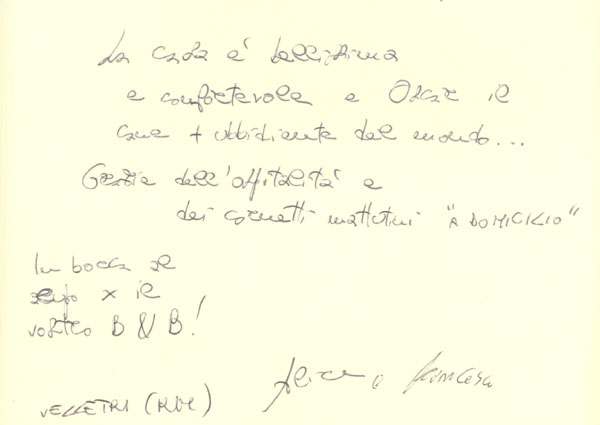 La casa è bellissima
e confortevole e Oscar il
cane + ubbidiente del mondo...
Grazie dell'ospitalità e
dei cornetti mattutini "A DOMICILIO"
In bocca al
lupo x il
vostro B & B!
Felice e Francesca
VELLETRI (ROM)